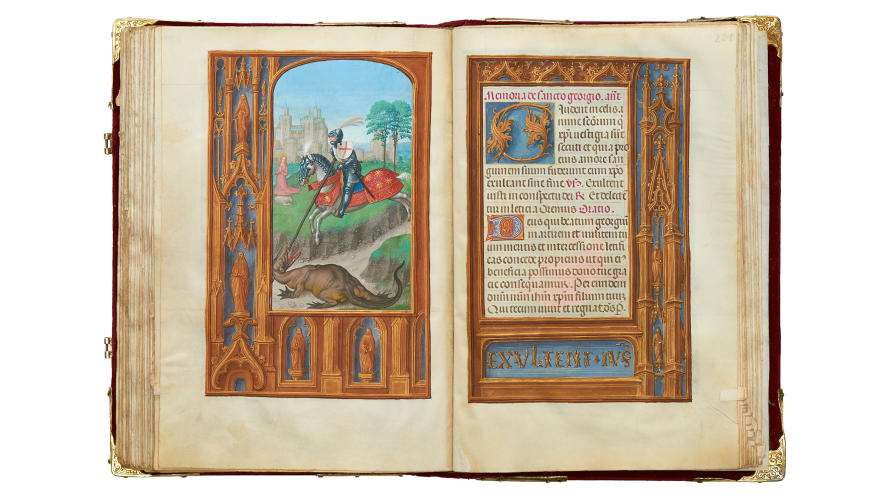 Memoria de sancto georgio. añt
Gaudent in celis a
nime sc̄orum q̄
xp̄i vestigia sūt
secuti et quia pro
eius amore san
guinem suum fuderunt cum xp̄o
exultant sine fine ℣. Exultent
iusti in conspectu dei ℟. Et delecte
tur in leticia Oremus Oratio.
Deus qui beatum georgiū
martirem et militem tu
um meritis et intercessione letifi
cas concede propicius ut qui ei
beneficia possimus dono tue gra
cie consequamur. Per eundem
dn̄um nr̄m ihm̄ xp̄m filium tuū.
Qui tecum vivit et regnat ds̄ P.
EXVLTENT·IVS